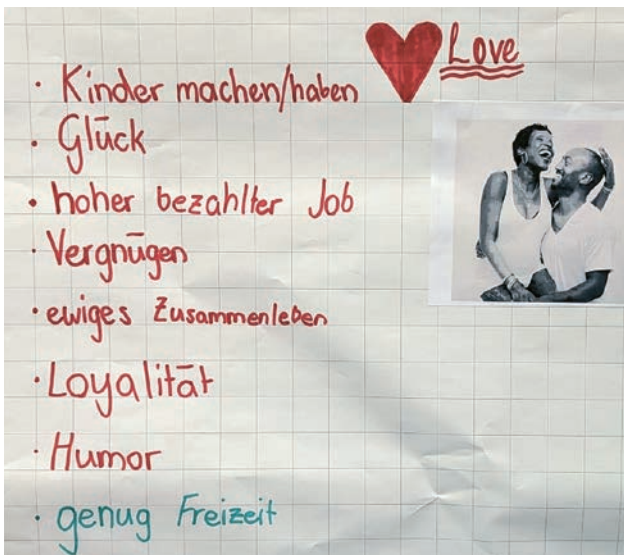 Love
· Kinder machen/haben
· Glück
· hoher bezahlter Job
· Vergnügen
· ewiges Zusammenleben
· Loyalität
· Humor
· genug Freizeit